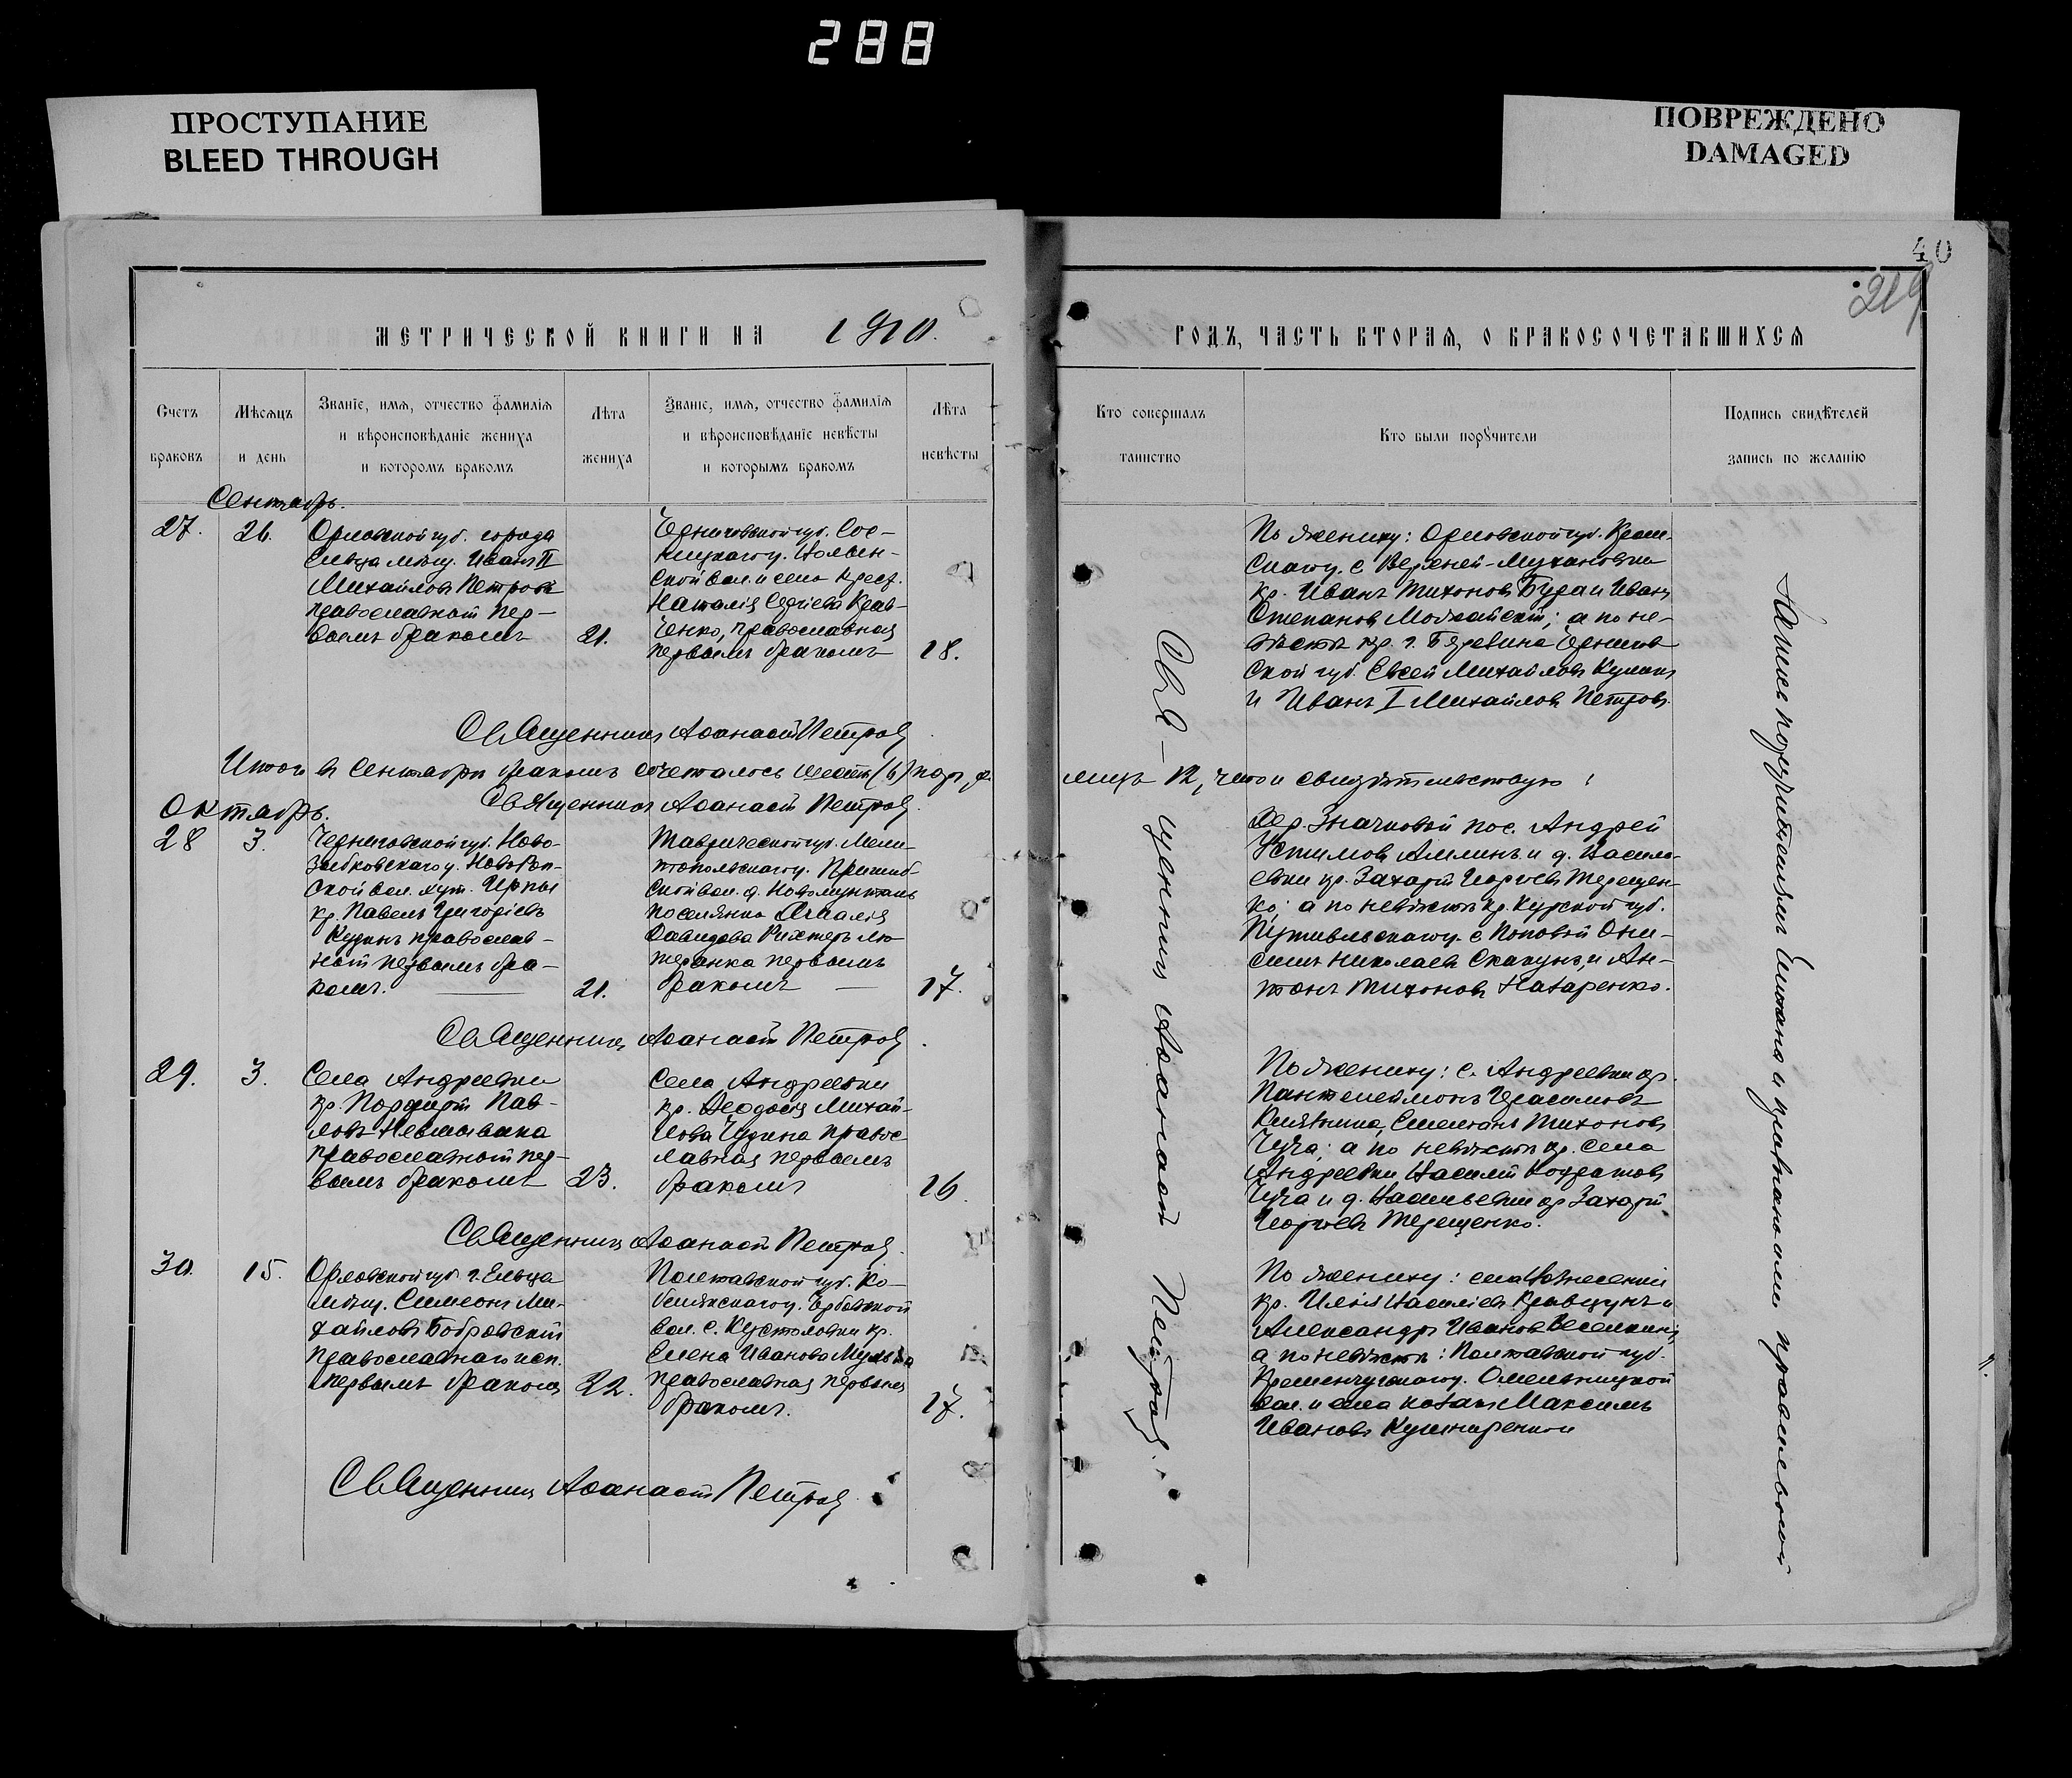 288
ПРОСТУПАНИЕ
BLEED THROUGH
ПОВРЕЖДЕНО
DAMAGED
40
219
МЕТРИЧЕСКОЙ КНИГИ НА 1910.
ГОДЪ, ЧАСТЬ ВТОРАЯ, О БРАКОСОЧЕТАВШИХСЯ
Счетъ браковъ
Мѣсяцъ и день
Званіе, имя, отчество фамилія
и вѣроисповѣданіе жениха
и которомъ бракомъ
Лѣта жениха
Званіе, имя, отчество фамилія
и вѣроисповѣданіе невѣсты
и которымъ бракомъ
Лѣта невѣсты
Кто совершалъ таинство
Кто были поручители
Подпись свидѣтелей
запись по желанію
Сентябрь.
27.
26.
Орловской губ. города
Ельца мѣщ. Иванъ II
Михайловъ Петровъ
православный пер-
вымъ бракомъ
21.
Черниговской губ. Сос-
ницкаго у.
ской вол. и села крест.
Наталія Сергіева Крав-
ченко, православная
первымъ бракомъ
18.
По женику: Орловской губ.
с.
кр. Иванъ Тихоновъ и Иванъ
Степановъ Можайскій; а по не-
вѣстѣ кр. Чернигов-
ской губ. Евсей Михайловъ
и Иванъ I Михайловъ Петровъ.
Священникъ Аѳанасій Петровъ
Итого въ Сентябрѣ бракомъ сочеталось шесть (6) паръ,
лицъ 12, что и свидѣтельствую:
Священникъ Аѳанасій Петровъ.
Октябрь.
28
3.
Черниговской губ. Ново-
зыбковскаго у. Новороп-
ской вол. хут. Ирпы
кр. Павелъ Григоріевъ
православ-
ный первымъ бра-
комъ.
21.
Таврической губ. Мели-
топольскаго у. Пришиб-
ской вол. д. Новомунталь
поселянка Амалія
Давидова Рихтеръ лю-
теранка первымъ
бракомъ
17.
Дер. Значковой пос. Андрей
Устимовъ и д. Василь-
евки кр. Захарій Георгіевъ Терещен-
ко; а по невѣстѣ кр. Курской губ.
Путивльскаго у. с. Поповой Они-
симъ Николаевъ Скакунъ, и Ан-
тонъ Тихоновъ Назаренко.
Священникъ Аѳанасій Петровъ.
29.
3.
Села Андреевки
кр. Порфирій Пав-
ловъ
православный пер-
вымъ бракомъ
23.
Села Андреевки
кр. Ѳеодосія Михай-
лова правос-
лавная первымъ
бракомъ
16.
По женику: с. Андреевки кр.
Пантелеймонъ Герасимовъ
Тихоновъ
Чуча; а по невѣстѣ кр. села
Андреевки Василій Кондратовъ
Чуча и д. Васильевки кр Захарій
Георгіевъ Терещенко.
Священникъ Аѳанасій Петровъ.
30.
15.
Орловской губ. г. Ельца
мѣщ. Симеонъ Ми-
хайловъ Бобровскій
Православнаго исп.
первымъ бракомъ
22.
Полтавской губ. Ко-
белякскаго у.
вол. с. Кустоловки кр.
Елена Иванова
православная первымъ
бракомъ.
17.
По женику: села Вознесенки
кр. Илія Василіевъ Кравцунъ и
Александръ Ивановъ Веселкинъ;
а по невѣстѣ: Полтавской губ.
Кременчугскаго у. Омельницкой
вол. и села козакъ Максимъ
Ивановъ
Священникъ Аѳанасій Петровъ.
Священникъ Аѳанасій Петровъ.